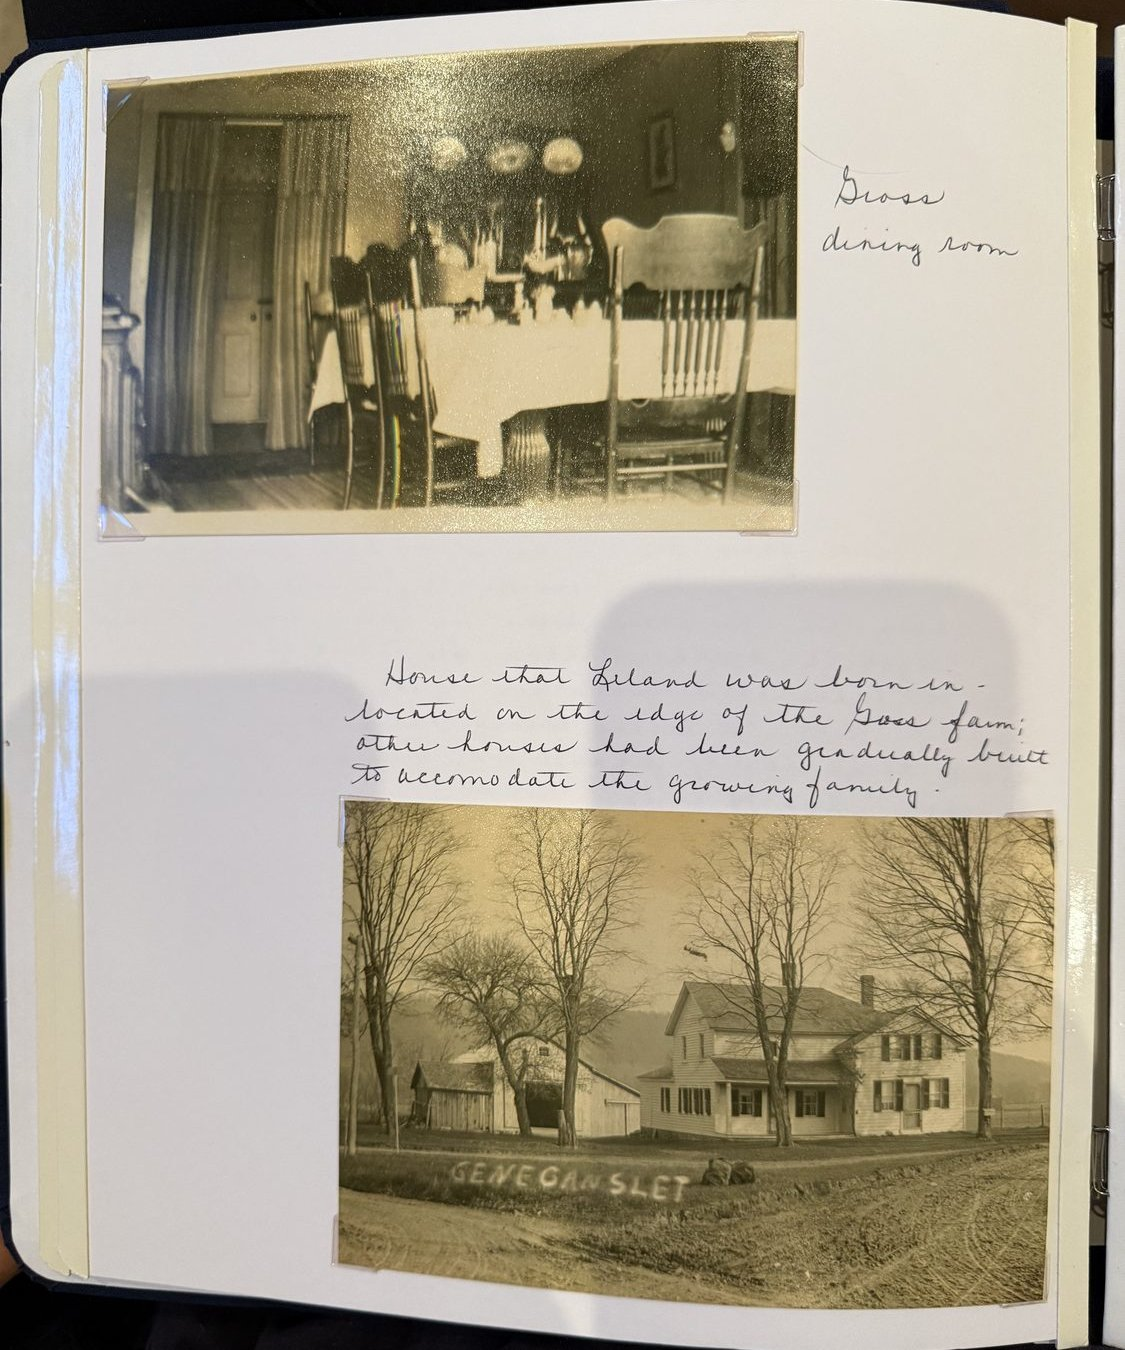 Goss
dining room
House that Leland was born in -
located on the edge of the Goss farm;
other houses had been gradually built
to accomodate the growing family.
GENEGANSLET